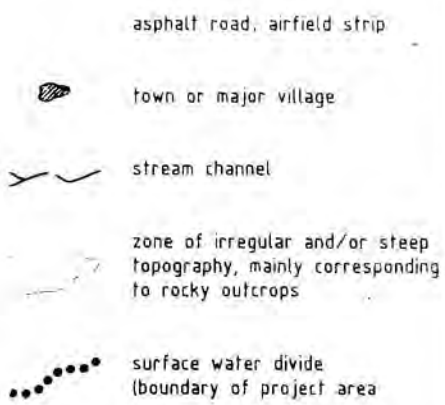 asphalt road, airfield strip
town or major village
stream channel
zone of irregular and/or steep
topography, mainly corresponding
to rocky outcrops
surface water divide
(boundary of project area